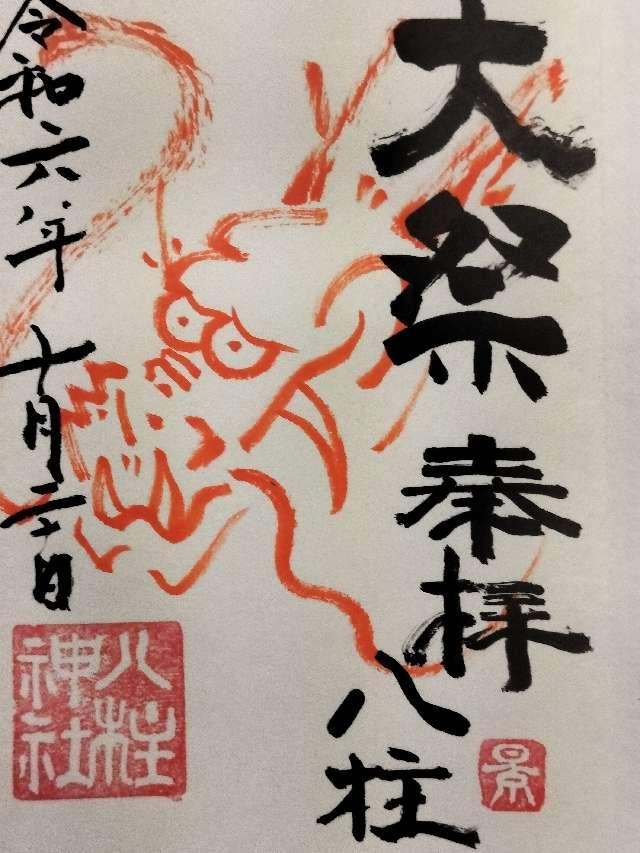 大祭
奉拝
八柱
令和六年十月二十日
八柱
神社
景